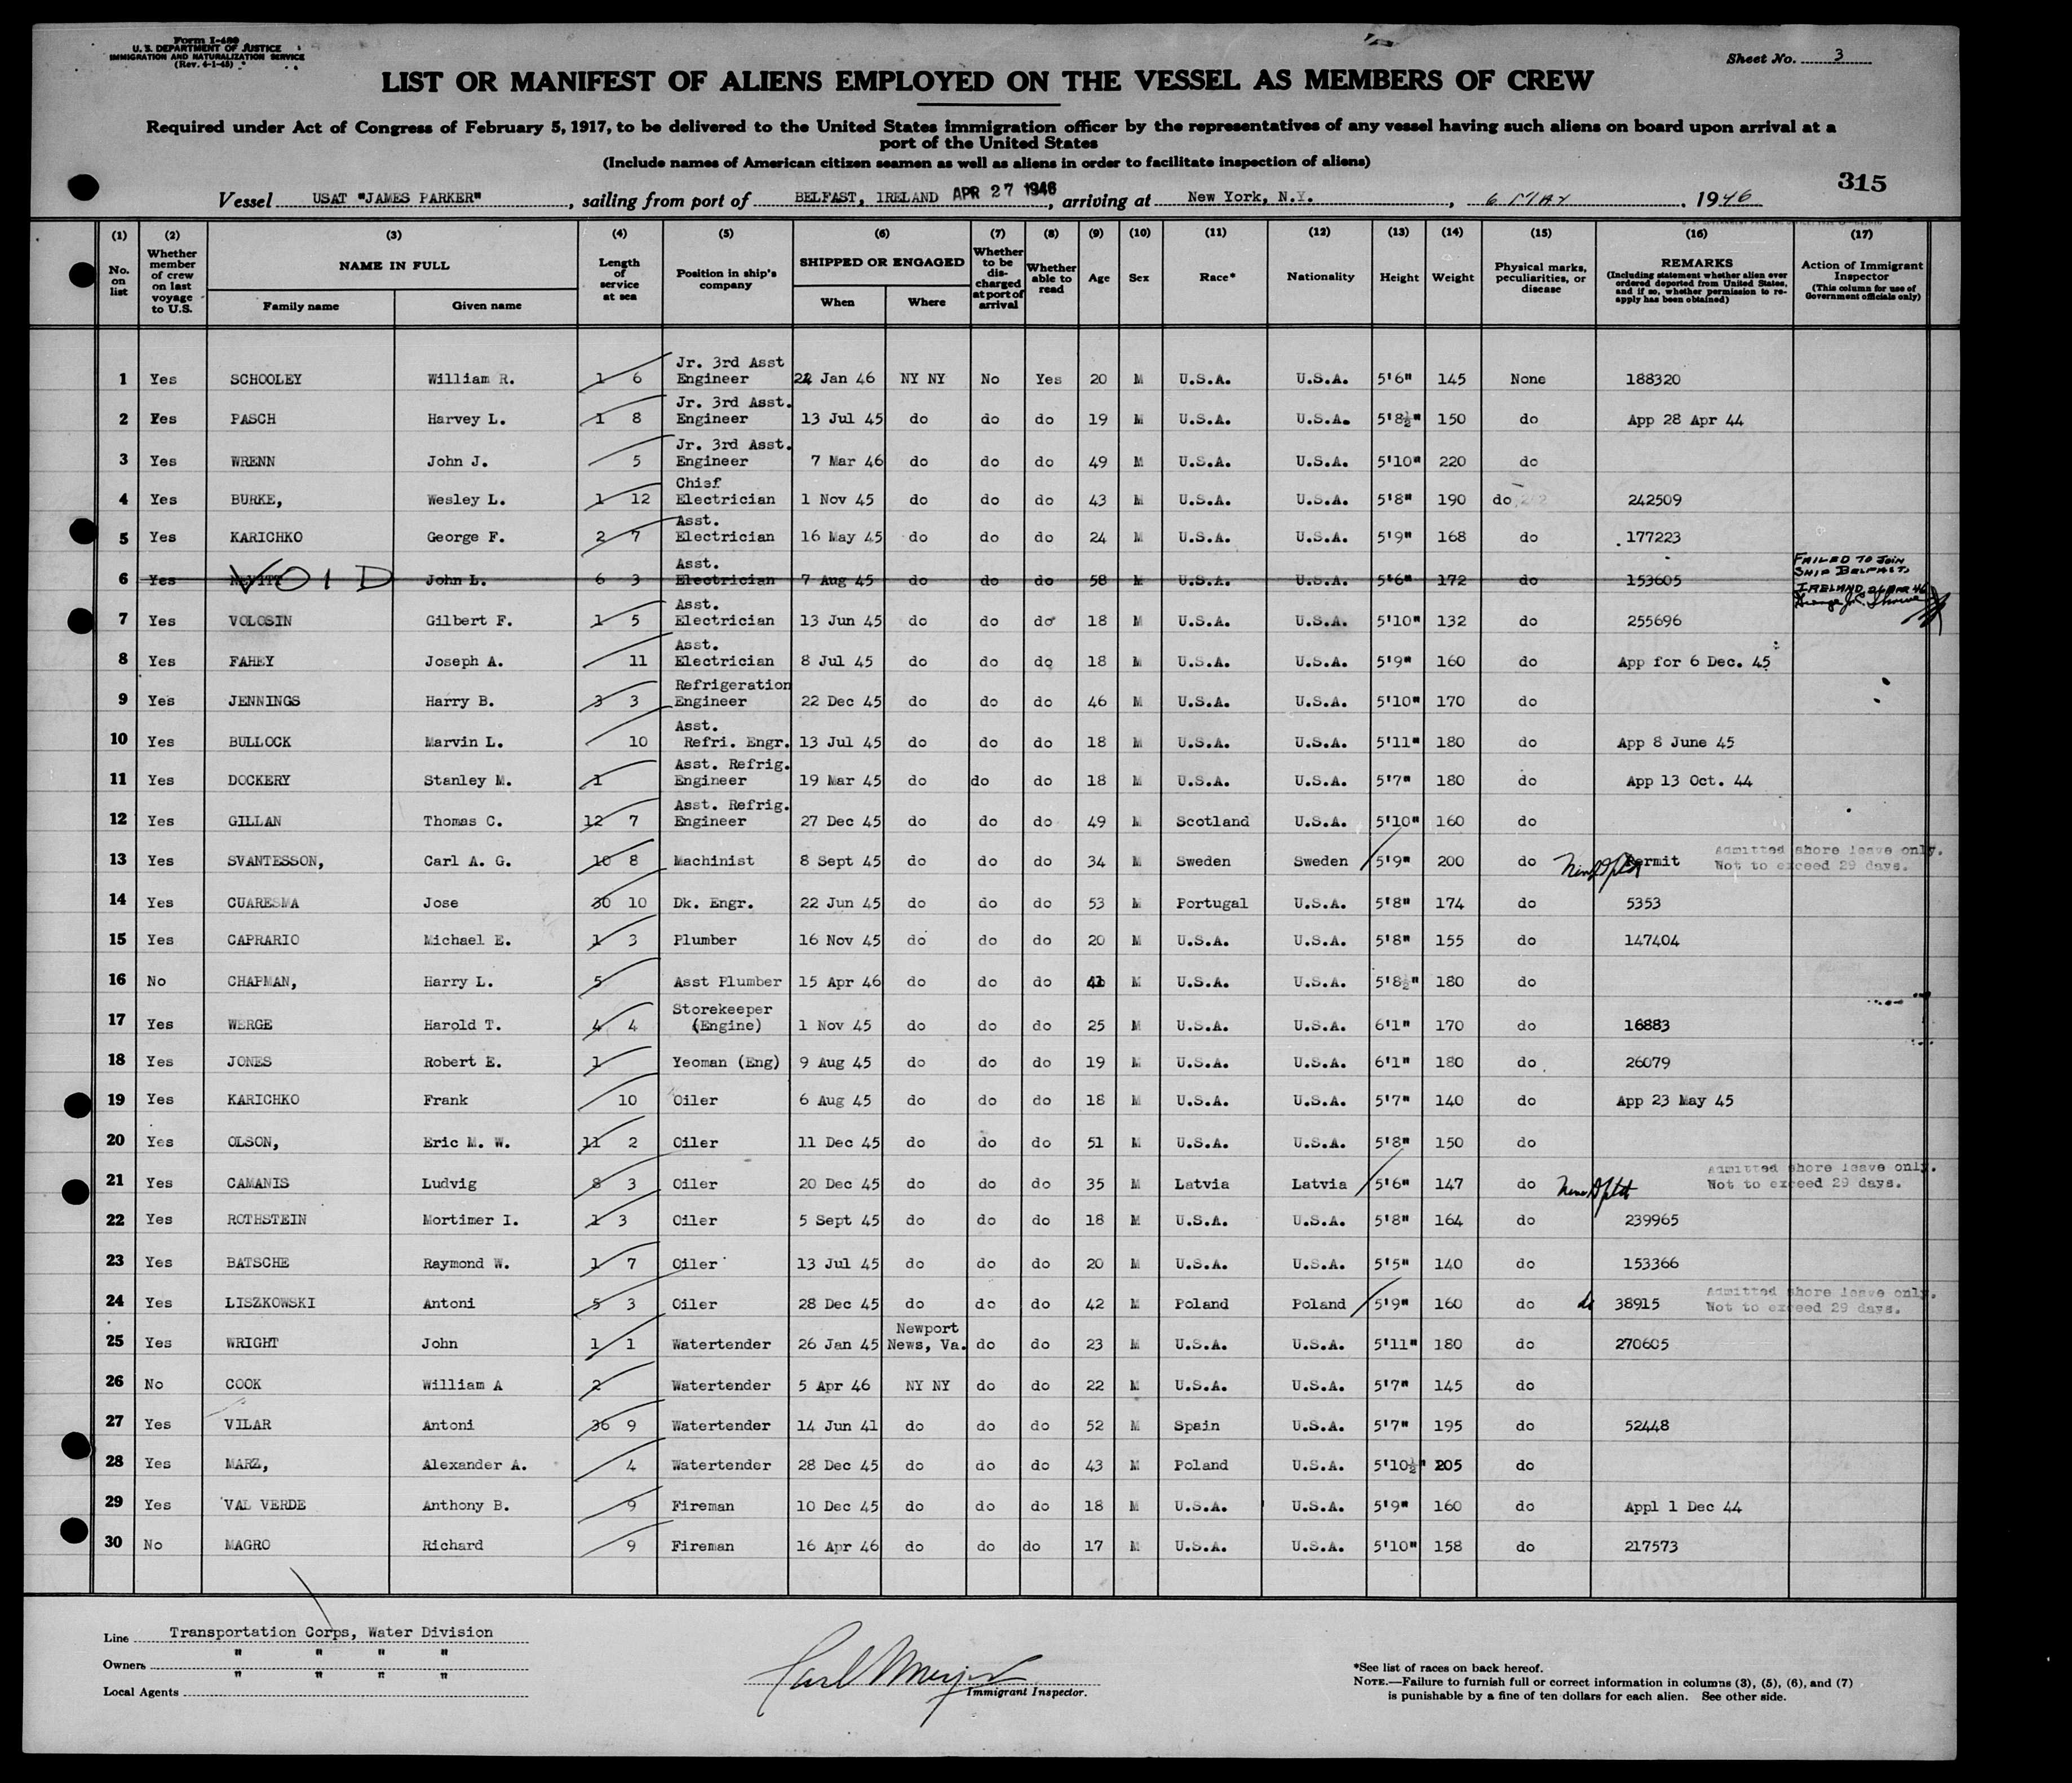 Form I-480
U. S. DEPARTMENT OF JUSTICE
IMMIGRATION AND NATURALIZATION SERVICE
(Rev. 4-1-45)
Sheet No. 3
LIST OR MANIFEST OF ALIENS EMPLOYED ON THE VESSEL AS MEMBERS OF CREW
Required under Act of Congress of February 5, 1917, to be delivered to the United States immigration officer by the representatives of any vessel having such aliens on board upon arrival at a
port of the United States
(Include names of American citizen seamen as well as aliens in order to facilitate inspection of aliens)
315
Vessel USAT "JAMES PARKER", sailing from port of BELFAST, IRELAND APR 27 1946, arriving at New York, N.Y., 6 MAY, 1946
(1) (2) (3) (4) (5) (6) (7) (8) (9) (10) (11) (12) (13) (14) (15) (16) (17)
No. on list
Whether member of crew on last voyage to U.S.
NAME IN FULL
Family name Given name
Length of service at sea
Position in ship's company
SHIPPED OR ENGAGED
When Where
Whether to be discharged at port of arrival
Whether able to read
Age Sex Race* Nationality Height Weight
Physical marks, peculiarities, or disease
REMARKS
(Including statement whether alien ever ordered deported from United States, and if so, whether permission to re-apply has been obtained)
Action of Immigrant Inspector
(This column for use of Government officials only)
1 Yes SCHOOLEY William R. 1 6 Jr. 3rd Asst Engineer 22 Jan 46 NY NY No Yes 20 M U.S.A. U.S.A. 5'6" 145 None 188320
2 Yes PASCH Harvey L. 1 8 Jr. 3rd Asst. Engineer 13 Jul 45 do do do 19 M U.S.A. U.S.A. 5'8½" 150 do App 28 Apr 44
3 Yes WRENN John J. 5 Jr. 3rd Asst. Engineer 7 Mar 46 do do do 49 M U.S.A. U.S.A. 5'10" 220 do
4 Yes BURKE, Wesley L. 1 12 Chief Electrician 1 Nov 45 do do do 43 M U.S.A. U.S.A. 5'8" 190 do 242509
5 Yes KARICHKO George F. 2 7 Asst. Electrician 16 May 45 do do do 24 M U.S.A. U.S.A. 5'9" 168 do 177223
6 Yes VOID John L. 6 3 Asst. Electrician 7 Aug 45 do do do 58 M U.S.A. U.S.A. 5'6" 172 do 153605 FAILED TO JOIN SHIP BELFAST, IRELAND 26 APR 46
7 Yes VOLOSIN Gilbert F. 1 5 Asst. Electrician 13 Jun 45 do do do 18 M U.S.A. U.S.A. 5'10" 132 do 255696
8 Yes FAHEY Joseph A. 11 Asst. Electrician 8 Jul 45 do do do 18 M U.S.A. U.S.A. 5'9" 160 do App for 6 Dec. 45
9 Yes JENNINGS Harry B. 3 3 Refrigeration Engineer 22 Dec 45 do do do 46 M U.S.A. U.S.A. 5'10" 170 do
10 Yes BULLOCK Marvin L. 10 Asst. Refri. Engr. 13 Jul 45 do do do 18 M U.S.A. U.S.A. 5'11" 180 do App 8 June 45
11 Yes DOCKERY Stanley M. 1 Asst. Refrig. Engineer 19 Mar 45 do do do 18 M U.S.A. U.S.A. 5'7" 180 do App 13 Oct. 44
12 Yes GILLAN Thomas C. 12 7 Asst. Refrig. Engineer 27 Dec 45 do do do 49 M Scotland U.S.A. 5'10" 160 do
13 Yes SVANTESSON, Carl A. G. 10 8 Machinist 8 Sept 45 do do do 34 M Sweden Sweden 5'9" 200 do Permit Admitted shore leave only. Not to exceed 29 days.
14 Yes CUARESMA Jose 30 10 Dk. Engr. 22 Jun 45 do do do 53 M Portugal U.S.A. 5'8" 174 do 5353
15 Yes CAPRARIO Michael E. 1 3 Plumber 16 Nov 45 do do do 20 M U.S.A. U.S.A. 5'8" 155 do 147404
16 No CHAPMAN, Harry L. 5 Asst Plumber 15 Apr 46 do do do 41 M U.S.A. U.S.A. 5'8½" 180 do
17 Yes WERGE Harold T. 4 4 Storekeeper (Engine) 1 Nov 45 do do do 25 M U.S.A. U.S.A. 6'1" 170 do 16883
18 Yes JONES Robert E. 1 Yeoman (Eng) 9 Aug 45 do do do 19 M U.S.A. U.S.A. 6'1" 180 do 26079
19 Yes KARICHKO Frank 10 Oiler 6 Aug 45 do do do 18 M U.S.A. U.S.A. 5'7" 140 do App 23 May 45
20 Yes OLSON, Eric M. W. 11 2 Oiler 11 Dec 45 do do do 51 M U.S.A. U.S.A. 5'8" 150 do
21 Yes CAMANIS Ludvig 8 3 Oiler 20 Dec 45 do do do 35 M Latvia Latvia 5'6" 147 do Admitted shore leave only. Not to exceed 29 days.
22 Yes ROTHSTEIN Mortimer I. 1 3 Oiler 5 Sept 45 do do do 18 M U.S.A. U.S.A. 5'8" 164 do 239965
23 Yes BATSCHE Raymond W. 1 7 Oiler 13 Jul 45 do do do 20 M U.S.A. U.S.A. 5'5" 140 do 153366
24 Yes LISZKOWSKI Antoni 5 3 Oiler 28 Dec 45 do do do 42 M Poland Poland 5'9" 160 do do 38915 Admitted shore leave only. Not to exceed 29 days.
25 Yes WRIGHT John 1 1 Watertender 26 Jan 45 Newport News, Va. do do 23 M U.S.A. U.S.A. 5'11" 180 do 270605
26 No COOK William A 2 Watertender 5 Apr 46 NY NY do do 22 M U.S.A. U.S.A. 5'7" 145 do
27 Yes VILAR Antoni 36 9 Watertender 14 Jun 41 do do do 52 M Spain U.S.A. 5'7" 195 do 52448
28 Yes MARZ, Alexander A. 4 Watertender 28 Dec 45 do do do 43 M Poland U.S.A. 5'10½" 205 do
29 Yes VAL VERDE Anthony B. 9 Fireman 10 Dec 45 do do do 18 M U.S.A. U.S.A. 5'9" 160 do Appl 1 Dec 44
30 No MAGRO Richard 9 Fireman 16 Apr 46 do do do 17 M U.S.A. U.S.A. 5'10" 158 do 217573
Line Transportation Corps, Water Division
Owners " " " "
Local Agents " " " "
Immigrant Inspector.
*See list of races on back hereof.
NOTE.—Failure to furnish full or correct information in columns (3), (5), (6), and (7)
is punishable by a fine of ten dollars for each alien. See other side.